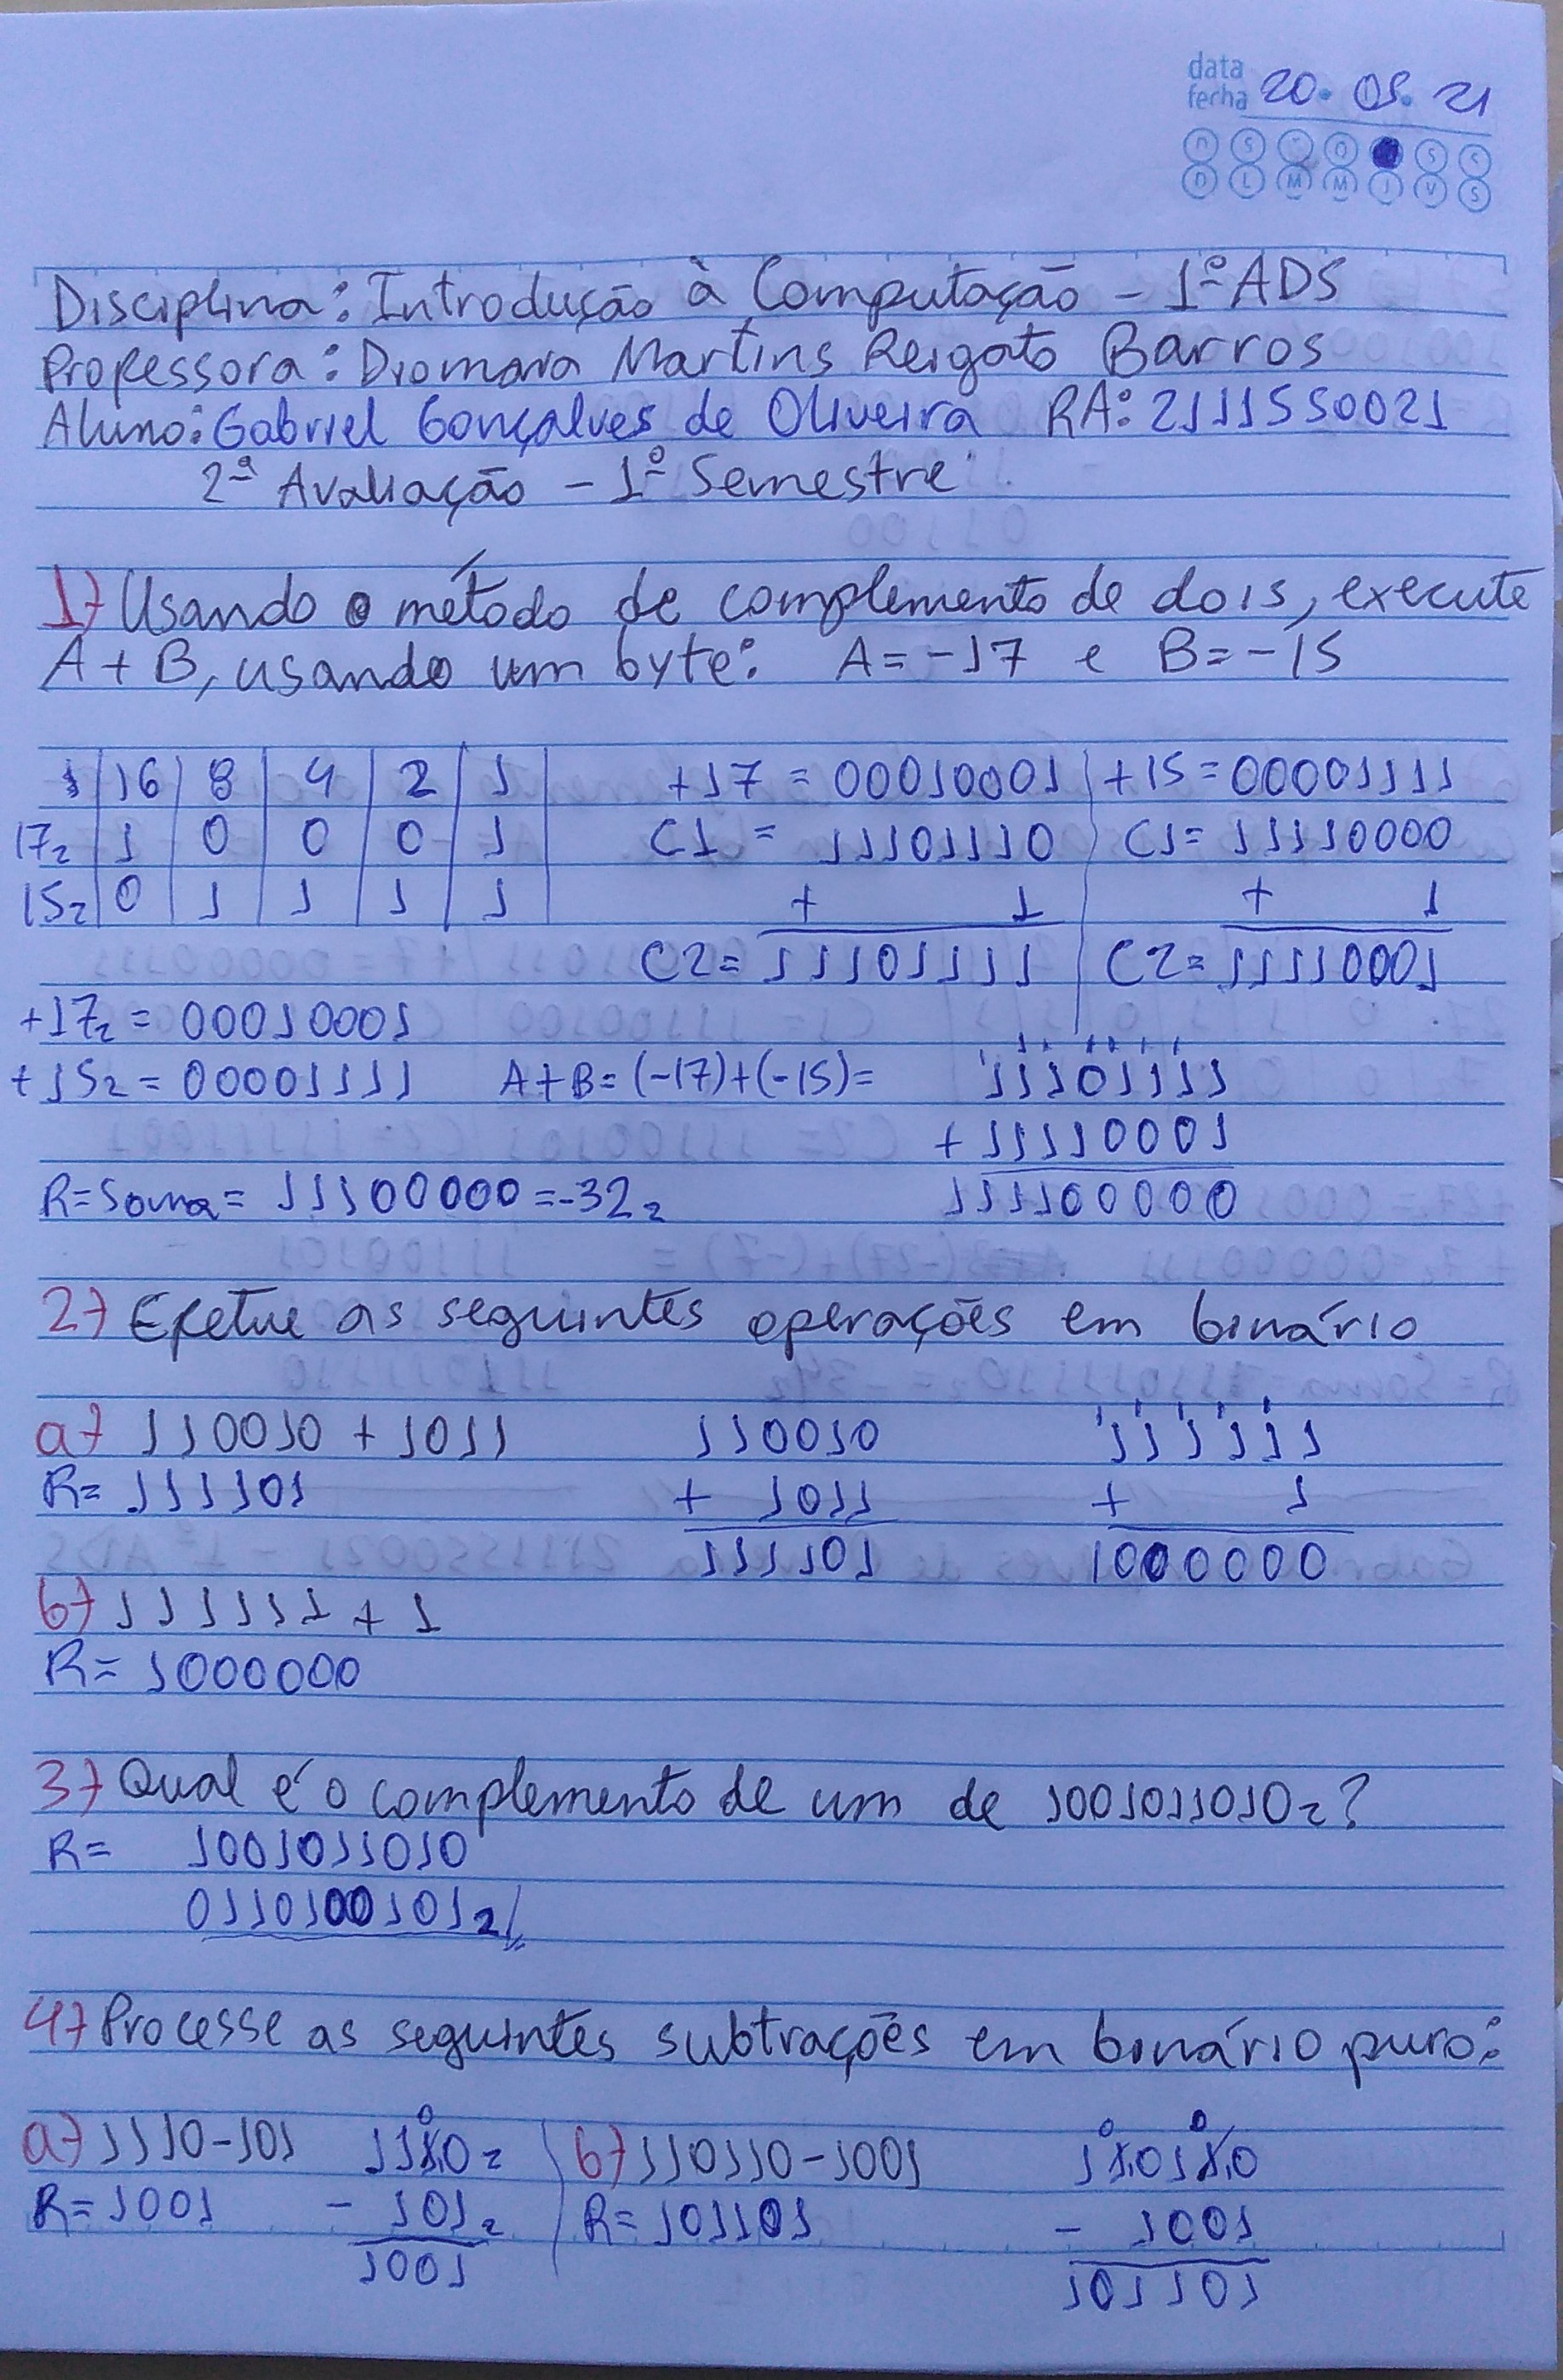 data
fecha 20. 05. 21
D S T Q S S
D L M M J V S
Disciplina: Introdução à Computação - 1º ADS
Professora: Diomara Martins Reigato Barros
Aluno: Gabriel Gonçalves de Oliveira RA: 2111550021
2ª Avaliação - 1º Semestre
1) Usando o método de complemento de dois, execute
A + B, usando um byte: A = -17 e B = -15
16 8 4 2 1 +17 = 00010001 +15 = 00001111
17₂ 1 0 0 0 1 C1 = 11101110 C1 = 11110000
15₂ 0 1 1 1 1 + 1 + 1
C2 = 11101111 C2 = 11110001
+17₂ = 00010001
+15₂ = 00001111 A+B = (-17)+(-15) = 11101111
+ 11110001
R = Soma = 11100000 = -32₂ 111100000
2) Efetue as seguintes operações em binário
a) 110010 + 1011 110010 111111
R = 111101 + 1011 + 1
111101 1000000
b) 111111 + 1
R = 1000000
3) Qual é o complemento de um de 1001011010₂?
R = 1001011010
0110100101₂
4) Processe as seguintes subtrações em binário puro:
a) 1110-101 1110₂ b) 110110-1001 110110
R = 1001 - 101₂ R = 101101 - 1001
1001 101101